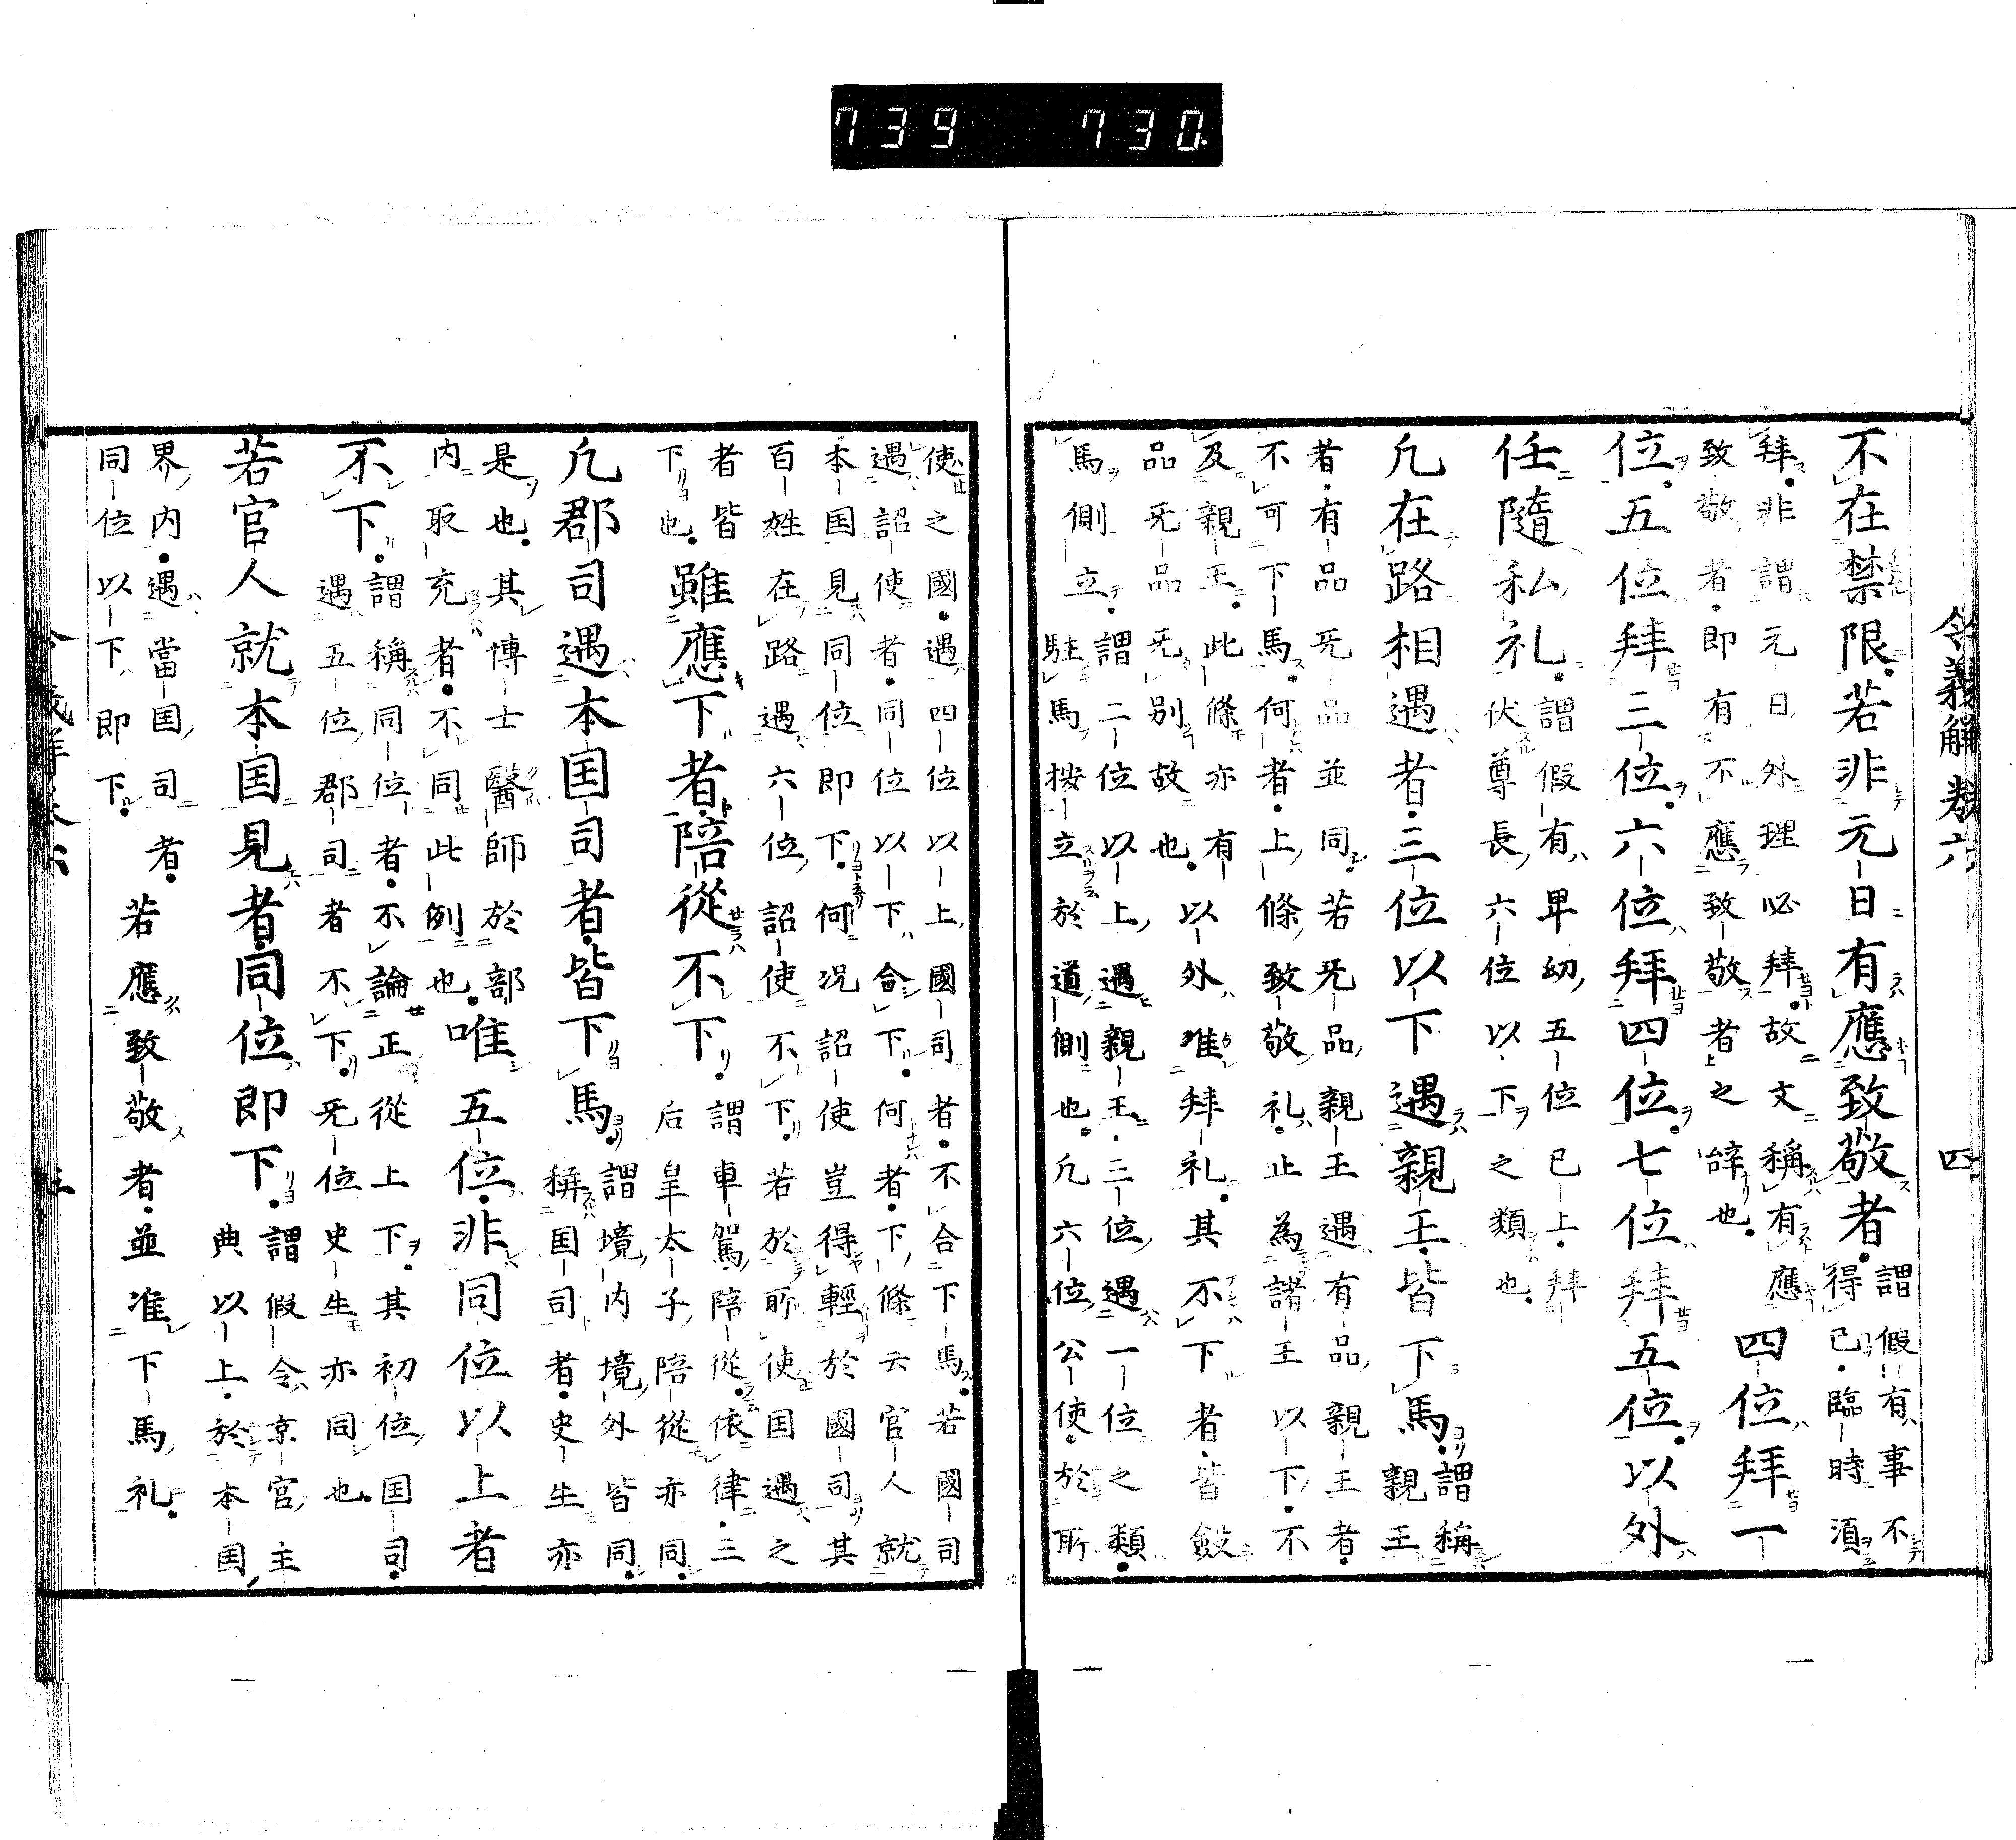 739 730
令義解巻六 四
不在禁限若非元日有應致敬者謂假有事不
得已臨時須
拜非謂元日外理必拜故文稱有應
致敬者即有不應致敬者之辞也四位拜一
位五位拜三位六位拜四位七位拜五位以外
任隨私礼謂假有卑幼五位已上拜
伏尊長六位以下之類也
凢在路相遇者三位以下遇親王皆下馬謂稱
親王
者有品无品並同若无品親王遇有品親王者
不可下馬何者上條致敬礼止為諸王以下不
及親王此條亦有
品无品无別故也以外准拜礼其不下者皆斂
馬側立謂二位以上遇親王二位遇一位之類
駐馬按立於道側也凢六位公使於所
使之國遇四位以上國司者不合下馬若國司
遇詔使者同位以下合下何者下條云官人就
本国見同位即下何況詔使豈得輕於國司其
百姓在路遇六位詔使不下若於所使国遇之
者皆
下也雖應下者陪從不下謂車駕陪從依律三
后皇太子陪從亦同
凢郡司遇本国司者皆下馬謂境内境外皆同
稱国司者史生亦
是也其博士醫師於部
内取充者不同此例也唯五位非同位以上者
不下謂稱同位者不論正從上下其初位国司
遇五位郡司者不下无位史生亦同也
若官人就本国見者同位即下謂假令京官主
典以上於本国
界内遇當国司者
同位以下即下若應致敬者並准下馬礼